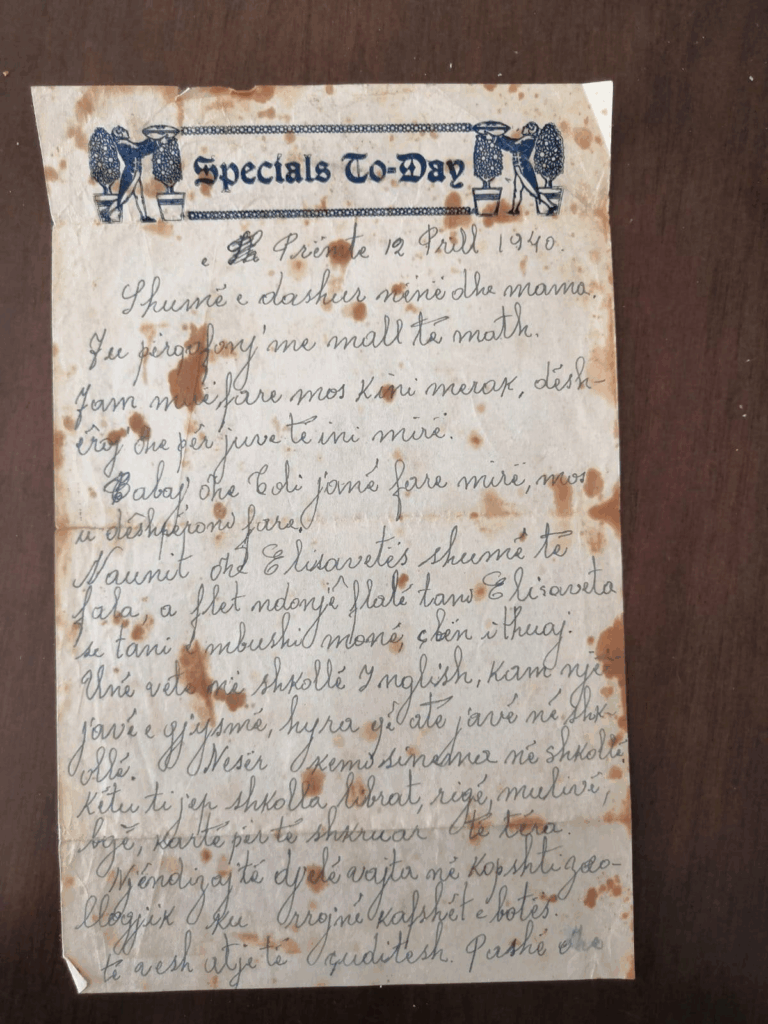 Specials To-Day
e Prëmte 12 Prill 1940.
Shumë e dashur nënë dhe mama.
Ju përqafonj' me mall të math.
Jam mirë fare mos kini merak, dësh-
ëroj dhe për juve të ini mirë.
Babaj dhe Toli janë fare mirë, mos
u dëshpëroni fare.
Naunit dhe Elisavetës shumë të
fala, a flet ndonjë flalë tani Elisaveta
se tani i mbushi monë, çbën i thuaj.
Unë vete në shkollë Inglish, kam një
javë e gjysmë, hyra që atë javë në shk-
ollë. Nesër kemi sinema në shkollë.
Këtu ti jep shkolla librat, rigë, mulivë,
bojë, kartë për të shkruar të tëra.
Njëndizaj të djelë vajta në kopshti zoo-
llogjik ku rrojnë kafshët e botës.
të vesh atje të çuditesh. Pashë dhe